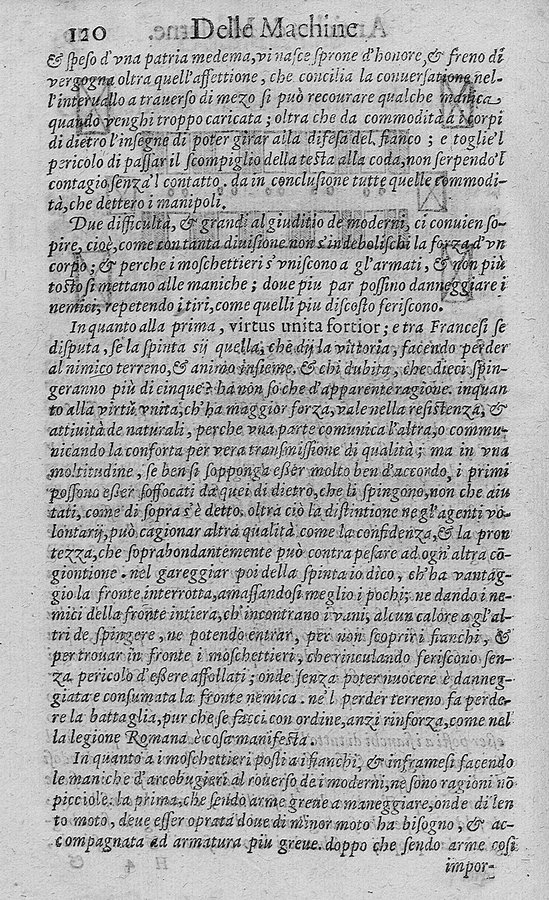 120 Delle Machine
& speso d'vna patria medema, vi nasce sprone d'honore, & freno di
vergogna oltra quell'affettione, che concilia la conuersatione nel-
l'interuallo a trauerso di mezo si può recourare qualche manica
quando venghi troppo caricata; oltra che da commodità a i corpi
di dietro l'insegne di poter girar alla difesa del fianco; e toglie'l
pericolo di passar il scompiglio della testa alla coda, non serpendo'l
contagio senza'l contatto. da in conclusione tutte quelle commodi-
tà, che dettero i manipoli.
Due difficultà, & grandi al giuditio de moderni, ci conuien so-
pire, cioè, come con tanta diuisione non s'indebolischi la forza d'vn
corpo; & perche i moschettieri s'vniscono a gl'armati, & non più
tosto si mettano alle maniche; doue piu par possino danneggiare i
nemici, repetendo i tiri, come quelli piu discosto feriscono.
In quanto alla prima, virtus unita fortior; e tra Francesi se
disputa, se la spinta sij quella, che dij la vittoria, facendo perder
al nimico terreno, & animo insieme, & chi dubita, che dieci spin-
geranno più di cinque? ha non so che d'apparente ragione. inquan
to alla virtù vnita, ch'ha maggior forza, vale nella resistenza, &
attiuità de naturali, perche vna parte comunica l'altra, o commu-
nicando la conforta per vera transmissione di qualità; ma in vna
moltitudine, se ben si sopponga eßer molto ben d'accordo, i primi
possono eßer soffocati da quei di dietro, che li spingono, non che aiu
tati, come di sopra s'è detto. oltra ciò la distintione negl'agenti vo-
lontarij, può cagionar altra qualità come la confidenza, & la pron
tezza, che soprabondantemente può contra pesare ad ogn'altra cō-
giontione. nel gareggiar poi della spinta io dico, ch'ha vantag-
gio la fronte interrotta, amassandosi meglio i pochi; ne dando i ne-
mici della fronte intiera, ch'incontrano i vani, alcun calore a gl'al-
tri de spingere, ne potendo entrar, per non scoprir i fianchi, &
per trouar in fronte i moschettieri, che rinculando feriscono sen-
za pericolo d'eßere affollati; onde senza poter nuocere è danneg-
giata e consumata la fronte nemica. ne'l perder terreno fa perde-
re la battaglia, pur che se facci con ordine, anzi rinforza, come nel
la legione Romana è cosa manifesta.
In quanto a i moschettieri posti a i fianchi, & inframesi facendo
le maniche d'arcobugieri al rouerso de i moderni, ne sono ragioni nō
picciole. la prima, che sendo arme greue a maneggiare, onde di len
to moto, deue esser oprata doue di minor moto ha bisogno, & ac-
compagnata ad armatura piu greue. doppo che sendo arme cosi
impor-